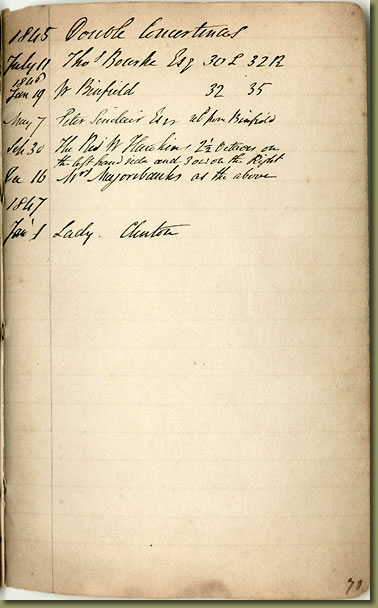 1845 Double Concertinas
July 11 Thos Bourke Esq 30 L 32 R
1846
Jan 19 W Binfield 32 35
May 7 Peter Sinclair Esq as for Binfield
30 The Revd W Hawkins 2½ Octaves on
the left hand side and 3 on the Right
16 Mrs Majoribanks as the above
1847
Jany 1 Lady. Clinton
70